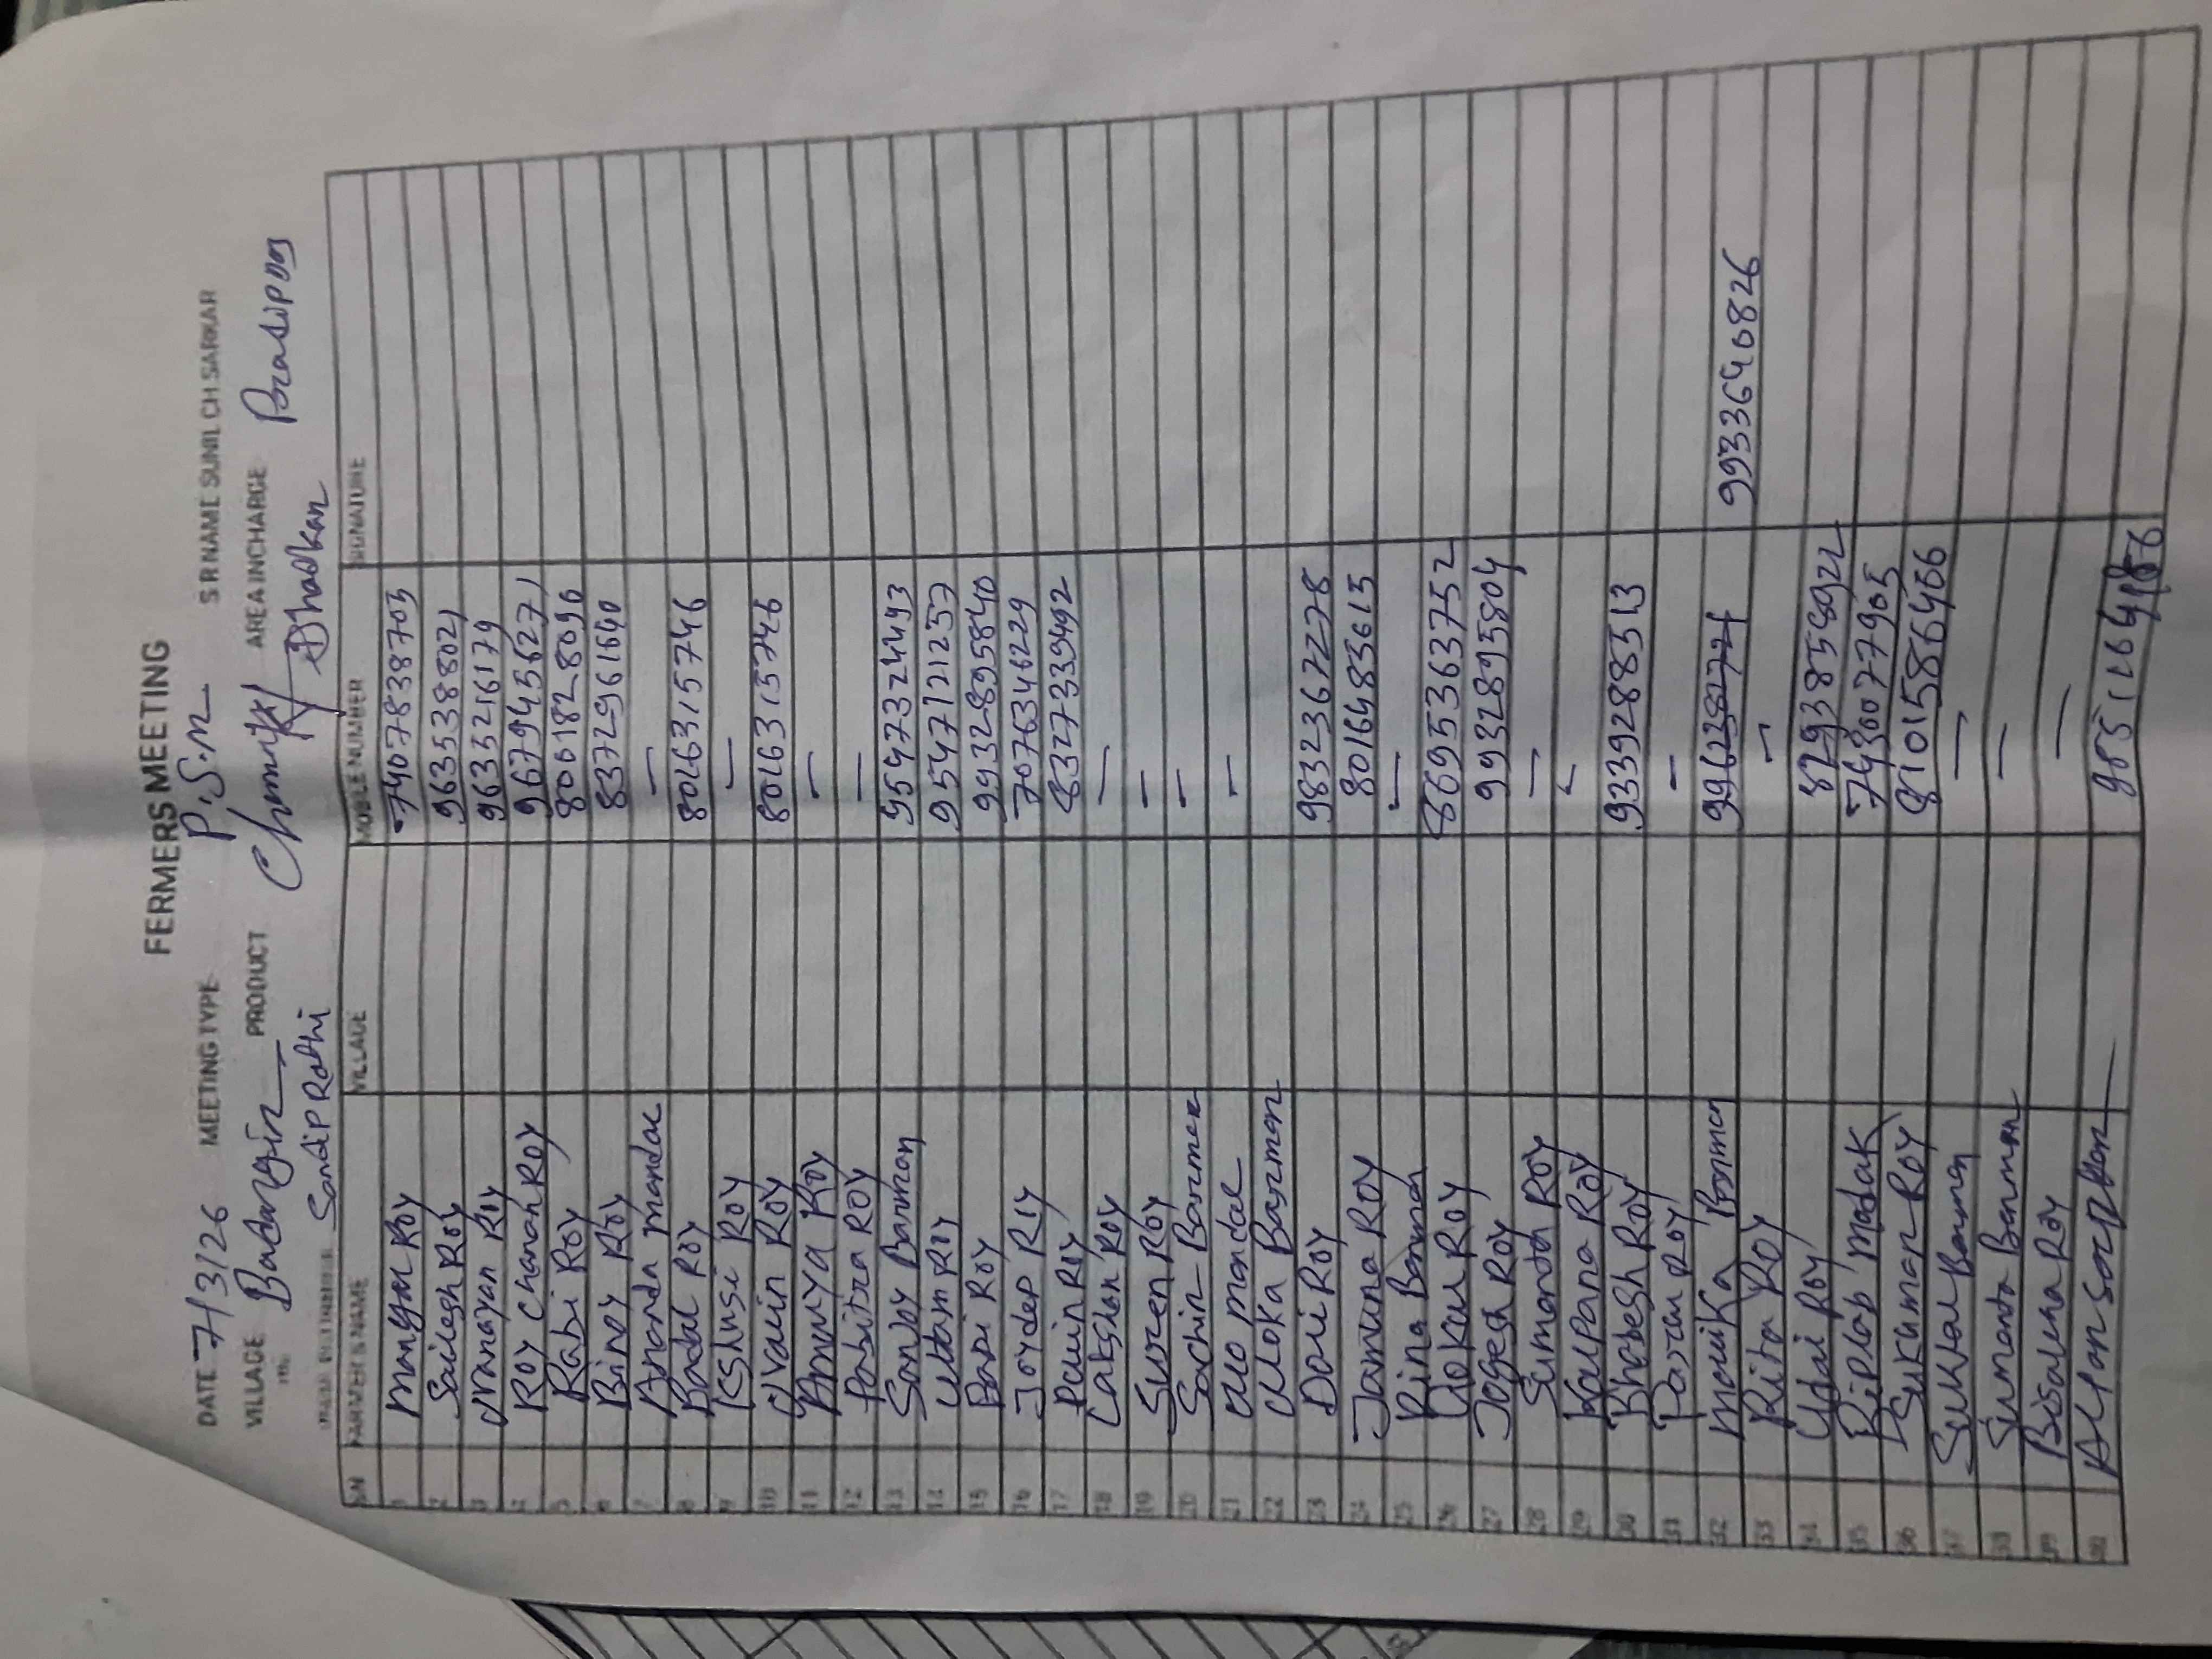 FERMERS MEETING
DATE 7/3/26 MEETING TYPE P.S.M S R NAME SUNIL CH SARKAR
VILLAGE PRODUCT AREA INCHARGE
Sandip Rathi
SN FARMER'S NAME VILLAGE MOBILE NUMBER SIGNATURE
1 Mangal Roy 7407838703
2 Sailegh Roy 9635388021
3 Narayan Roy 9633216179
4 Roy Charan Roy 9679456271
5 Rabi Roy 8001828090
6 Binoy Roy 8372961640
7 Ananda Mandal —
8 Badal Roy 8016315746
9 Kshusi Roy —
10 Roy 8016315746
11 Amulya Roy —
12 Pabitra Roy —
13 Sanjoy Barman 9547324493
14 Uttam Roy 9547121257
15 Bapi Roy 9932895840
16 Joydep Roy 7076346229
17 Roy 8327339492
18 Lakshan Roy —
19 Suren Roy —
20 Sachin Barman —
21 Mandal —
22 Barman
23 Roy 9832367278
24 Jamuna Roy 8016483615
25 Rina Barman —
26 Gokul Roy 8695363752
27 Jogesh Roy 9932895804
28 Sumanta Roy —
29 Kalpana Roy —
30 Bhabesh Roy 9339288513
31 Roy —
32 Manika Barman 9933640826
33 Rita Roy —
34 Udai Roy 8293858922
35 Biplab Modak 7430077905
36 Sukumar Roy 8101586466
37 Barman —
38 Sumanta Barman —
39 Roy —
40